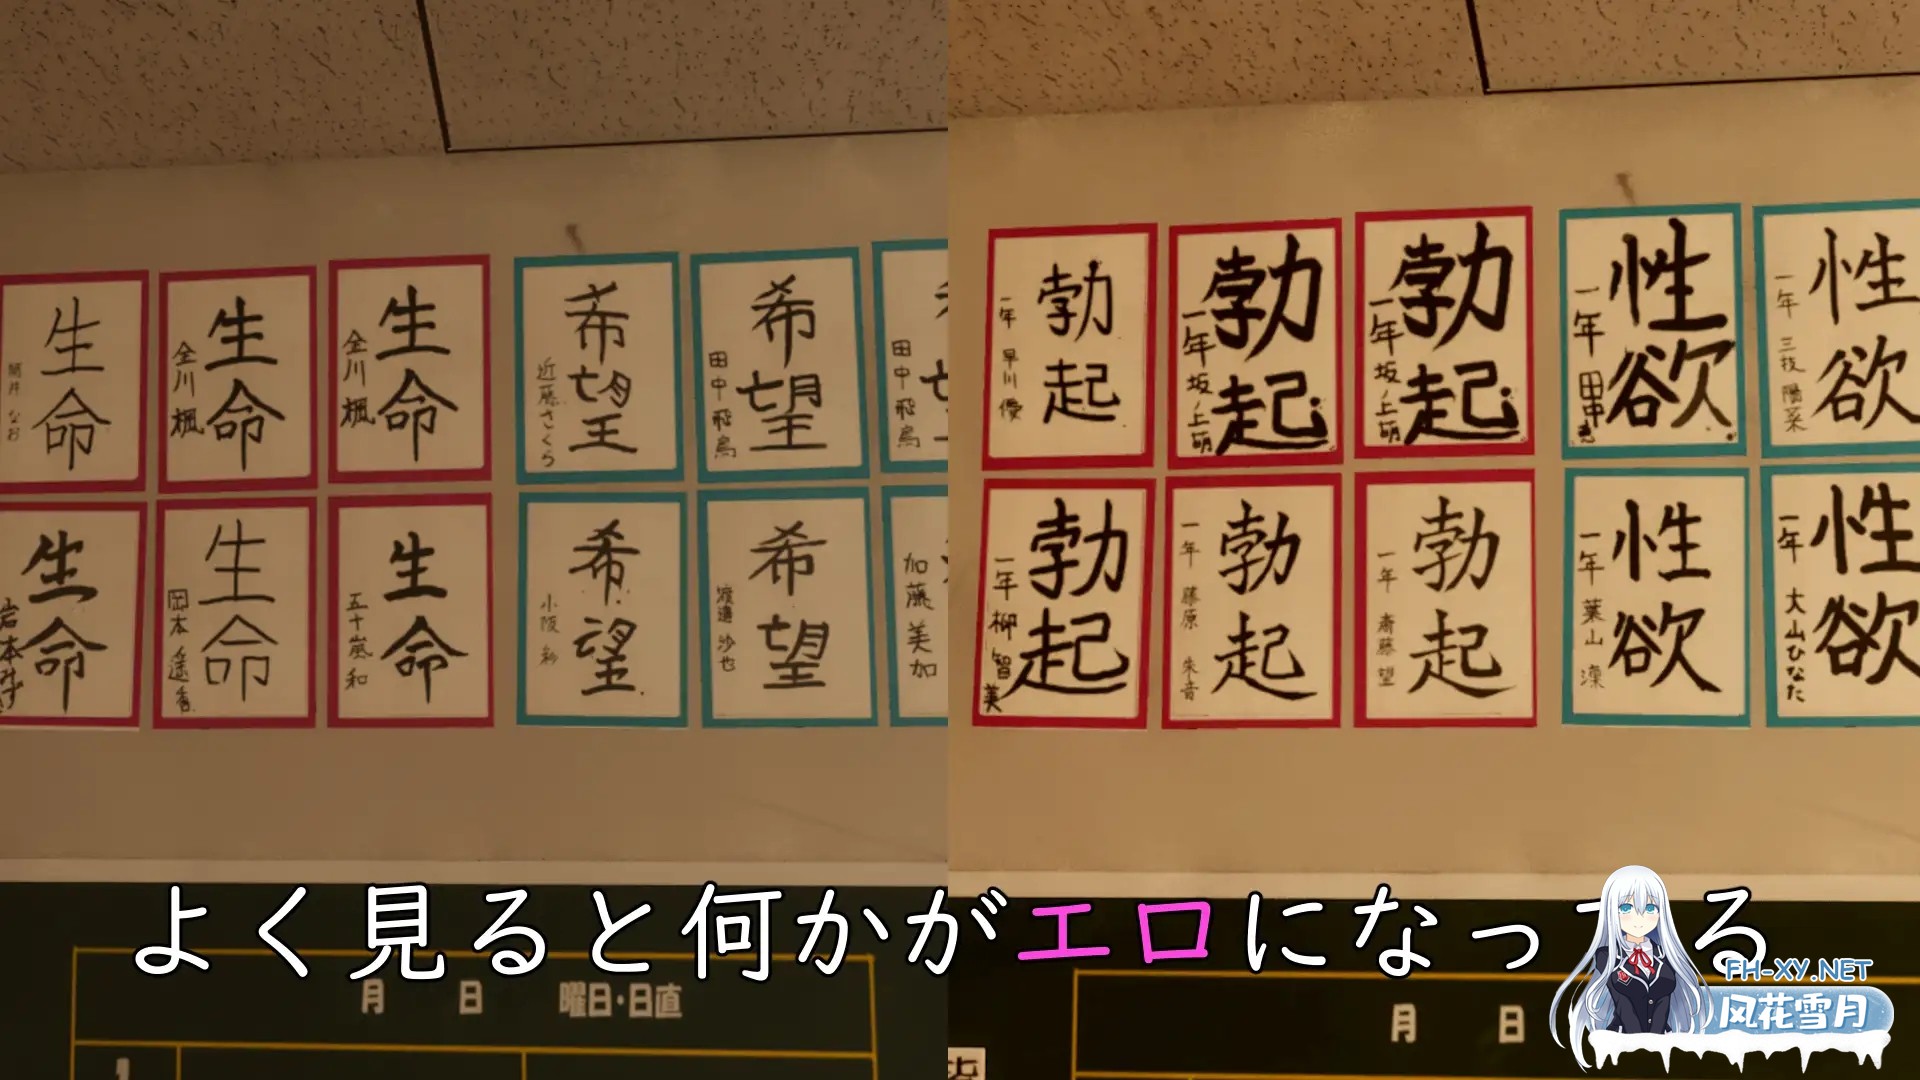 生命
筒井 なお
生命
金川 楓
生命
金川 楓
希望
近藤さくら
希望
田中 飛鳥
田中 飛鳥
生命
岩本みず
生命
岡本 遥香
生命
五十嵐 和
希望
小阪 彩
希望
渡邉 沙也
加藤 美加
勃起
一年 早川 優
勃起
一年 坂ノ上萌
勃起
一年 坂ノ上萌
性欲
一年 田中恵
性欲
一年 三枝 陽菜
勃起
一年 柳 智美
勃起
一年 藤原 朱音
勃起
一年 斎藤 望
性欲
一年 葉山 凜
性欲
一年 大山ひなた
よく見ると何かがエロになっ る
月 日 曜日・日直
月 日
FH-XY.NET
风花雪月